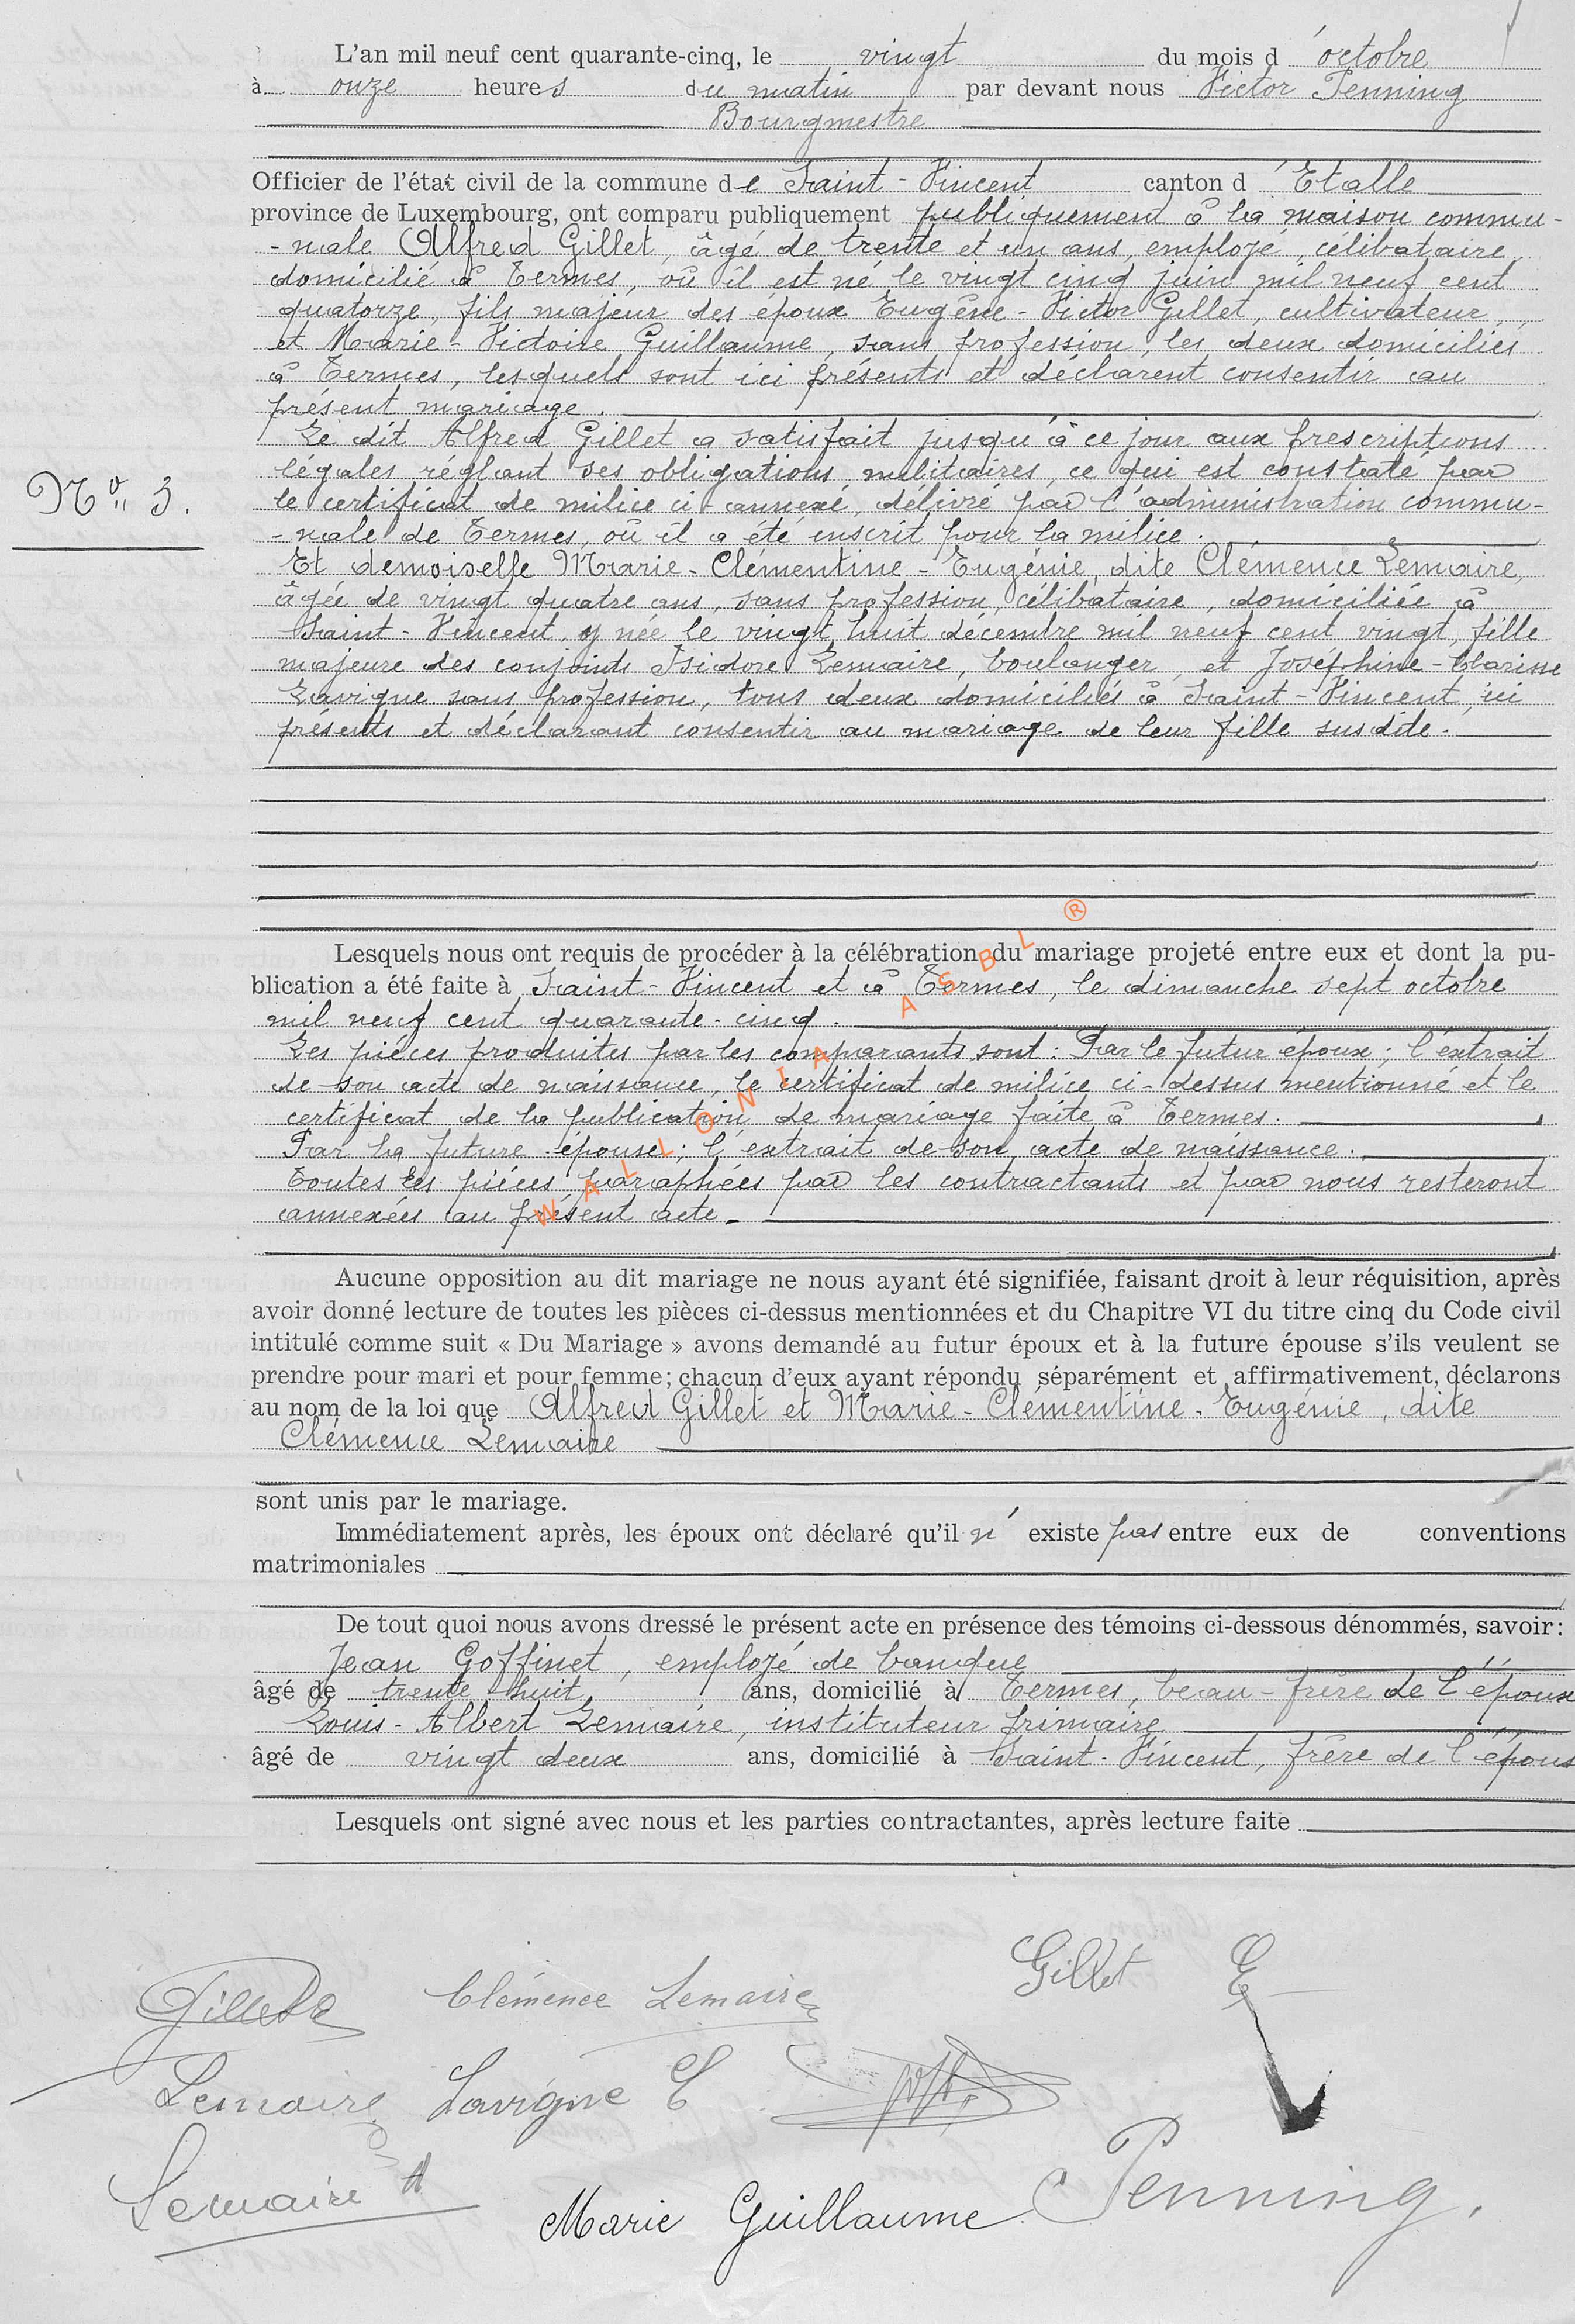 L'an mil neuf cent quarante-cinq, le vingt du mois d'octobre
à onze heures du matin par devant nous Victor Penning
Bourgmestre
Officier de l'état civil de la commune de Saint-Vincent canton d'Etalle
province de Luxembourg, ont comparu publiquement publiquement à la maison commu-
-nale Alfred Gillet, âgé de trente et un ans, employé, célibataire,
domicilié à Termes, où il est né le vingt cinq juin mil neuf cent
quatorze, fils majeur des époux Eugène-Victor Gillet, cultivateur,
et Marie-Victoire Guillaume, sans profession, les deux domiciliés
à Termes, lesquels sont ici présents et déclarent consentir au
présent mariage.
Le dit Alfred Gillet a satisfait jusqu'à ce jour aux prescriptions
légales réglant ses obligations militaires, ce qui est constaté par
No 3.
le certificat de milice ci-annexé, délivré par l'administration commu-
-nale de Termes, où il a été inscrit pour la milice.
Et demoiselle Marie-Clémentine-Eugénie, dite Clémence Lemaire,
âgée de vingt quatre ans, sans profession, célibataire, domiciliée à
Saint-Vincent, y née le vingt huit décembre mil neuf cent vingt, fille
majeure des conjoints Isidore Lemaire, boulanger, et Joséphine-Clarisse
Lavigne sans profession, tous deux domiciliés à Saint-Vincent, ici
présents et déclarant consentir au mariage de leur fille susdite.
Lesquels nous ont requis de procéder à la célébration du mariage projeté entre eux et dont la pu-
blication a été faite à Saint-Vincent et à Termes, le dimanche sept octobre
mil neuf cent quarante-cinq.
Les pièces produites par les comparants sont: Par le futur époux; l'extrait
de son acte de naissance, le certificat de milice ci-dessus mentionné et le
certificat de la publication de mariage faite à Termes.
Par la future épouse; l'extrait de son acte de naissance.
Toutes les pièces paraphées par les contractants et par nous resteront
annexées au présent acte.
WALLONIA ASBL ®
Aucune opposition au dit mariage ne nous ayant été signifiée, faisant droit à leur réquisition, après
avoir donné lecture de toutes les pièces ci-dessus mentionnées et du Chapitre VI du titre cinq du Code civil
intitulé comme suit « Du Mariage » avons demandé au futur époux et à la future épouse s'ils veulent se
prendre pour mari et pour femme; chacun d'eux ayant répondu séparément et affirmativement, déclarons
au nom de la loi que Alfred Gillet et Marie-Clémentine-Eugénie, dite
Clémence Lemaire
sont unis par le mariage.
Immédiatement après, les époux ont déclaré qu'il n'existe pas entre eux de conventions
matrimoniales
De tout quoi nous avons dressé le présent acte en présence des témoins ci-dessous dénommés, savoir:
Jean Goffinet, employé de banque
âgé de trente-huit ans, domicilié à Termes, beau-frère de l'époux
Louis-Albert Lemaire, instituteur primaire
âgé de vingt deux ans, domicilié à Saint-Vincent, frère de l'épous
Lesquels ont signé avec nous et les parties contractantes, après lecture faite
Gillet E
Clémence Lemaire
Lemaire Lavigne C
Lemaire A
Marie Guillaume Penning.